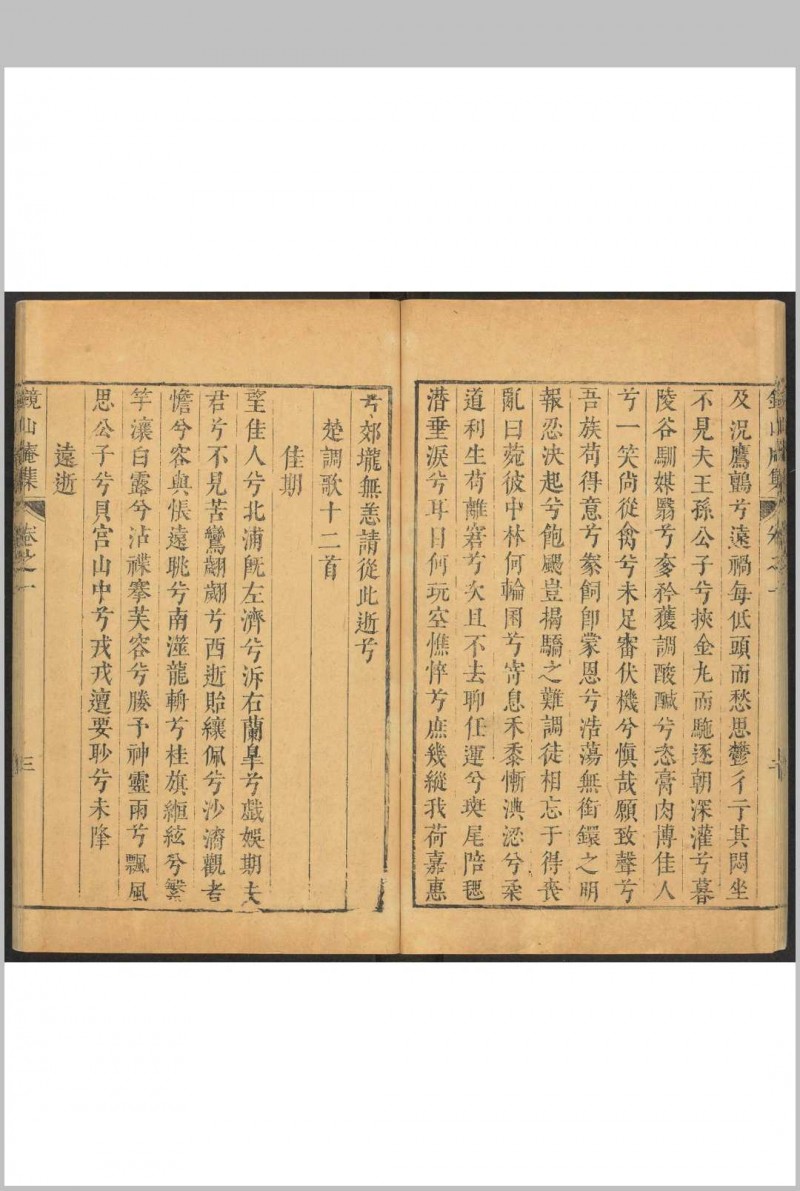 鏡山庵集
卷之一
二
及況鷹鸇兮遠禍每低頭而愁思鬱彳亍其悶坐
不見夫王孫公子兮挾金丸而馳逐朝深灌兮暮
陵谷馴媒翳兮麥矜獲調酸鹹兮恣膏肉博佳人
兮一笑尚從禽兮未足審伏機兮愼哉願致聲兮
吾族苟得意兮豢飼卽蒙恩兮浩蕩無銜鐶之明
報忍決起兮飽颺豈搨驕之難調徒相忘于得喪
亂曰菀彼中林何輪囷兮寄息禾黍慚淟涊兮柔
道利生苟離窘兮次且不去聊任運兮斑尾陪毸
潛垂淚兮耳目何玩室憔悴兮庶幾縱我荷嘉惠
兮郊壠無恙請從此逝兮
楚調歌十二首
佳期
望佳人兮北浦旣左濟兮泝右蘭皐兮戲娛期夫
君兮不見苦鸞翽翽兮西逝貽纕佩兮沙瀆觀者
憺兮容與悵遠眺兮南澨龍輈兮桂旗緪絃兮繁
竽瀼白露兮沾褋搴芙容兮媵予神靈雨兮飄風
思公子兮貝宮山中兮戎戎邅要眇兮未降
遠逝
鏡山庵集
卷之一
三